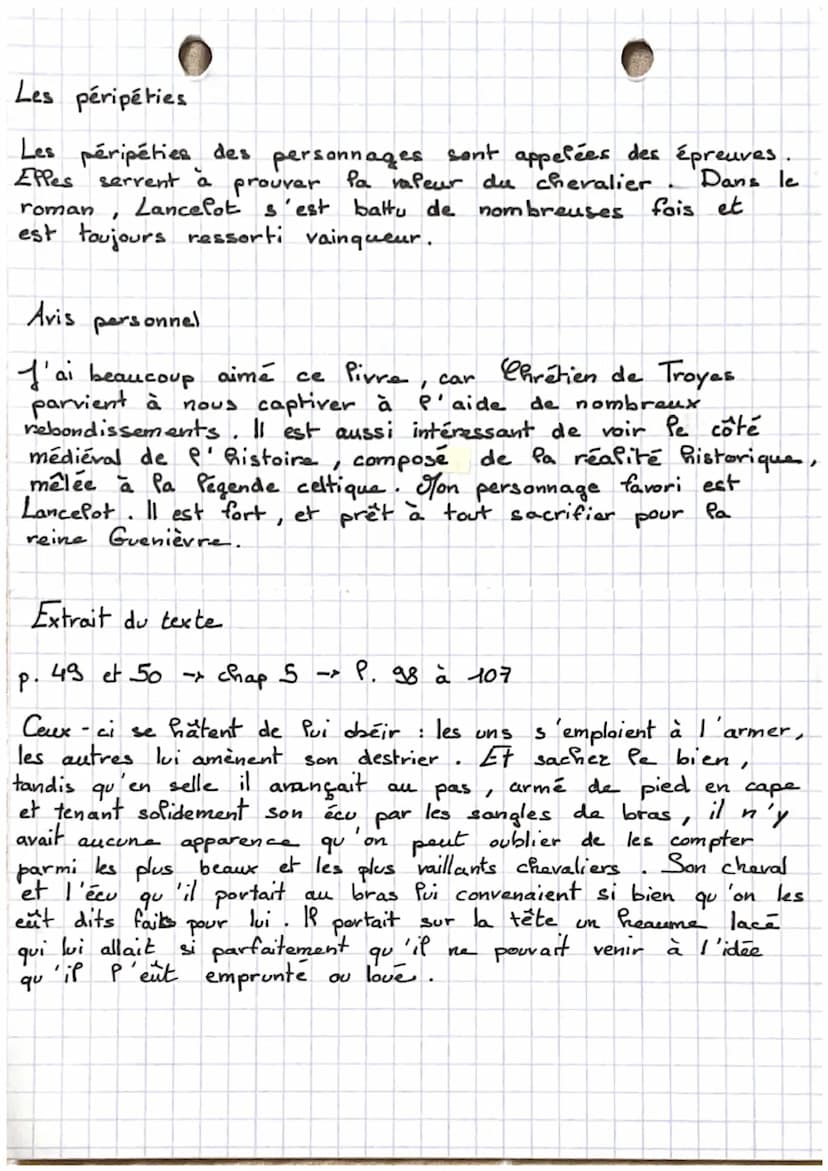 Les péripéties
Les péripéties des personnages sont appelées des épreuves.
Elles servent à prouver la valeur du chevalier. Dans le
roman, Lancelot s'est battu de nombreuses fois et
est toujours ressorti vainqueur.
Avis personnel
J'ai beaucoup aimé ce livre, car Chrétien de Troyes
parvient à nous captiver à l'aide de nombreux
rebondissements. Il est aussi intéressant de voir le côté
médiéval de l'histoire, composé de la réalité historique,
mêlée à la légende celtique. Mon personnage favori est
Lancelot. Il est fort, et prêt à tout sacrifier pour la
reine Guenièvre.
Extrait du texte
p. 49 et 50 → chap 5 → l. 98 à 107
Ceux-ci se hâtent de lui obéir : les uns s'emploient à l'armer,
les autres lui amènent son destrier. Et sachez le bien,
tandis qu'en selle il avançait au pas, armé de pied en cape
et tenant solidement son écu par les sangles de bras, il n'y
avait aucune apparence qu'on peut oublier de les compter
parmi les plus beaux et les plus vaillants chevaliers. Son cheval
et l'écu qu'il portait au bras lui convenaient si bien qu'on les
eût dits faits pour lui. Il portait sur la tête un heaume lacé
qui lui allait si parfaitement qu'il ne pouvait venir à l'idée
qu'il l'eût emprunté ou loué.